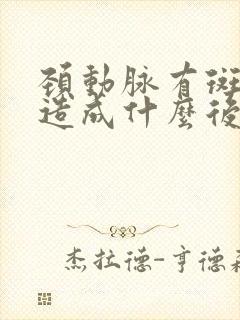 頚動脉有斑
造成什麼後
杰拉德-亨德